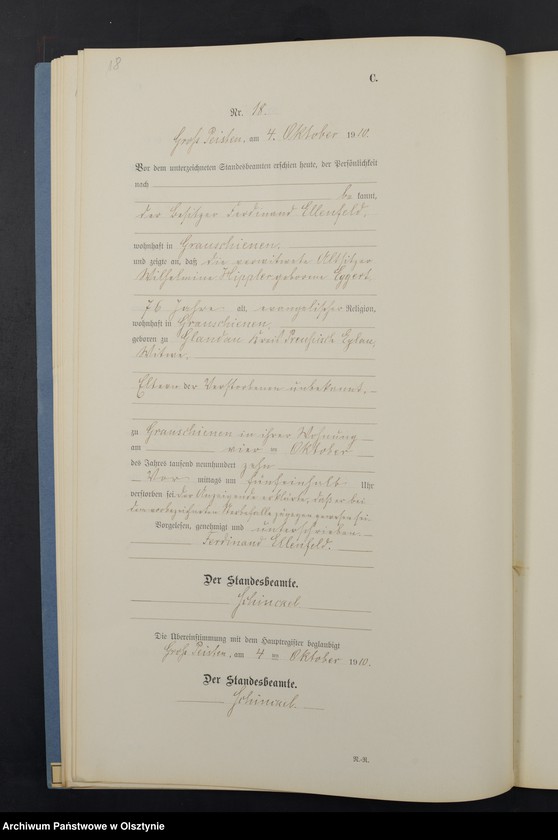 18
C.
Nr. 18
Groß Peisten, am 4. Oktober 1910.
Vor dem unterzeichneten Standesbeamten erschien heute, der Persönlichkeit
nach
be kannt,
der Besitzer Ferdinand Ellenfeld,
wohnhaft in Grauschienen,
und zeigte an, daß die verwitwete Altsitzer
Wilhelmine Hippler geborene Eggert
76 Jahre alt, evangelischer Religion,
wohnhaft in Grauschienen,
geboren zu Glandau Kreis Preußisch Eylau,
Witwe,
Eltern der Verstorbenen unbekannt.
zu Grauschienen in ihrer Wohnung
am vier ten Oktober
des Jahres tausend neunhundert zehn
Vor mittags um fünfeinhalb Uhr
verstorben sei. Der Anzeigende erklärte, daß er bei
dem vorbezeichneten Sterbefalle zugegen gewesen sei.
Vorgelesen, genehmigt und unterschrieben.
Ferdinand Ellenfeld.
Der Standesbeamte.
Die Übereinstimmung mit dem Hauptregister beglaubigt
Groß Peisten, am 4 ten Oktober 1910.
Der Standesbeamte.
Archiwum Państwowe w Olsztynie